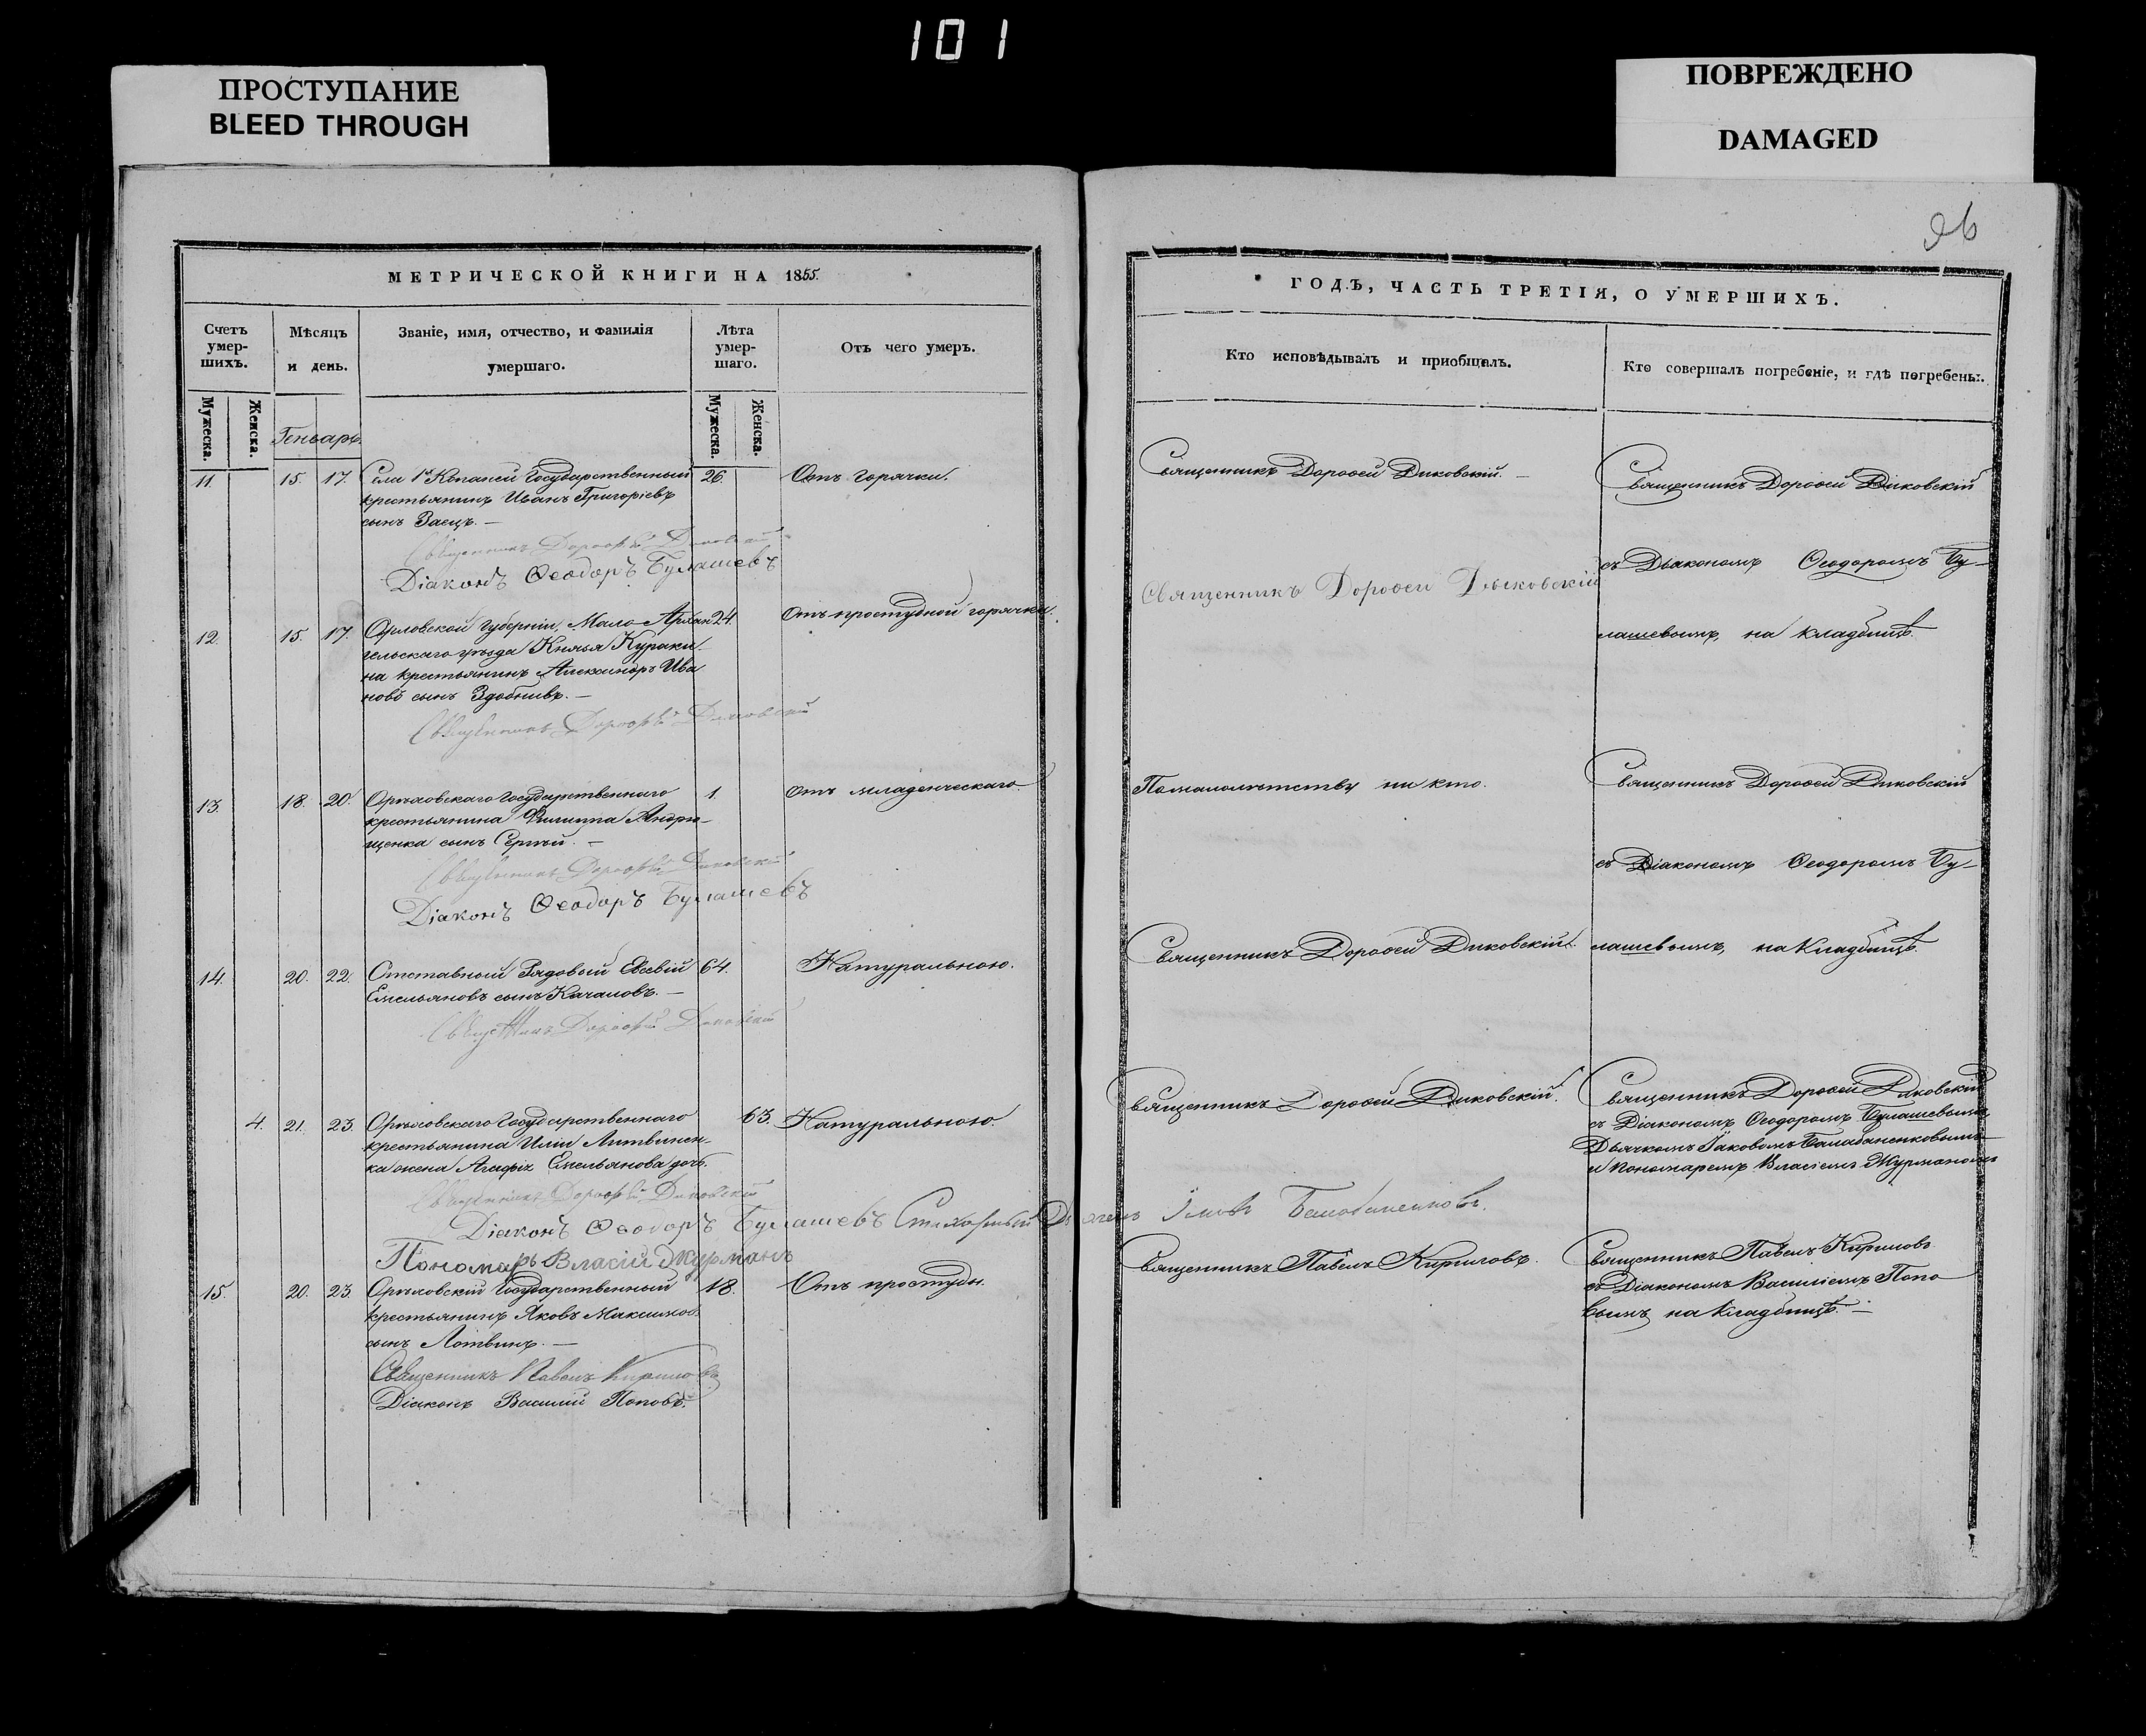 101
ПРОСТУПАНИЕ
BLEED THROUGH
ПОВРЕЖДЕНО
DAMAGED
МЕТРИЧЕСКОЙ КНИГИ НА 1855.
Счетъ умер-шихъ.
Мѣсяцъ и день.
Званіе, имя, отчество, и фамилія умершаго.
Лѣта умер-шаго.
Отъ чего умеръ.
Мужеска.
Женска.
Мужеска.
Женска.
Генварь.
11. 15. 17. Села 1й Копаней Государственный 26. Отъ горячки.
крестьянинъ Иванъ Григоріевъ
сынъ Заецъ. —
Священникъ Дороѳей Диковский
Діаконъ Ѳеодоръ Булашевъ
12. 15. 17. Орловской Губерніи, Мало-Архан 24. Отъ простудной горячки.
гельскаго уѣзда Князя Кураки
на крестьянинъ Александръ Ива
новъ сынъ Здобневъ. —
Священникъ Дороѳей Диковский
13. 18. 20. Орѣховскаго Государственнаго 1. Отъ младенческаго.
крестьянина Филиппа Андрю-
щенка сынъ Сергѣй. —
Священникъ Дороѳей Диковский
Діаконъ Ѳеодоръ Булашевъ
14. 20. 22. Отставный Рядовый Евсевій 64. Натуральною.
Емельяновъ сынъ Качаловъ. —
Священникъ Дороѳей Диковский
4. 21. 23. Орѣховскаго Государственнаго 63. Натуральною.
крестьянина Иліи Литвинен-
ка жена Агафія Емельянова дочь.
Священникъ Дороѳей Диковский
Діаконъ Ѳеодоръ Булашевъ Стихарный Дьячекъ Балабаненковъ.
Пономарь Власій Журманъ
15. 20. 23. Орѣховскій Государственный 18. Отъ простуды.
крестьянинъ Яковъ Максимов.
сынъ Литвинъ. —
Священникъ Павелъ Кириловъ
Діаконъ Василий Поповъ.
ГОДЪ, ЧАСТЬ ТРЕТІЯ, О УМЕРШИХЪ.
Кто исповѣдывалъ и приобщалъ.
Кто совершалъ погребеніе, и гдѣ погребены.
Священникъ Дороѳей Диковскій. —
Священникъ Дороѳей Диковскій
съ Діакономъ Ѳеодоромъ Бу-
Священникъ Дороѳей Дыковскій
лашевымъ, на кладбищѣ.
По малолѣтству ни кто.
Священникъ Дороѳей Диковскій
съ Діакономъ Ѳеодоромъ Бу-
Священникъ Дороѳей Диковскій.
лашевымъ, на Кладбищѣ.
Священникъ Дороѳей Диковскій.
Священникъ Дороѳей Диковскій
съ Діакономъ Ѳеодоромъ Булашевымъ
Дьячкомъ Іаковомъ Балабаненковымъ
и Пономаремъ Власіемъ Журманомъ
Священникъ Павелъ Кириловъ.
Священникъ Павелъ Кириловъ
съ Діакономъ Василіемъ Попо
вымъ на Кладбищѣ. —